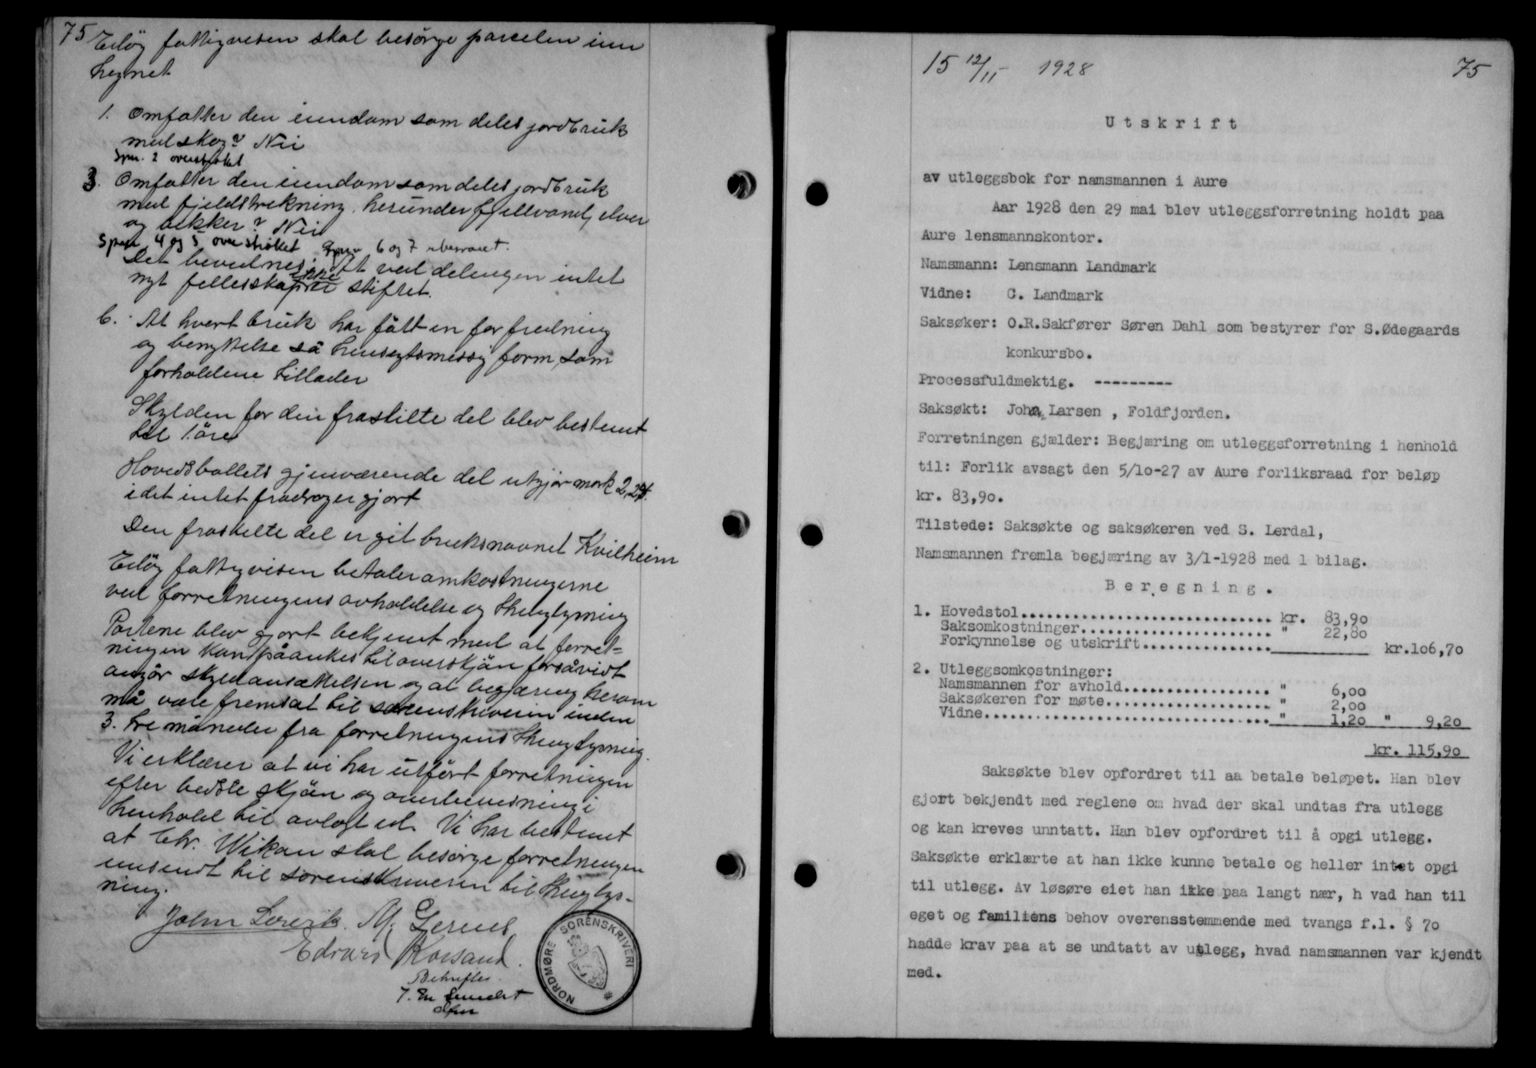 75 Edøy fattigvesen skal besørge parcelen inn
hegnet
1. Omfatter den eiendom som deles jordbruk
med skog? Nei
Spm. 2 overstrøket
3. Omfatter den eiendom som deles jordbruk
med fjeldstrekning, herunder fjellvand, elver
og bekker? Nei
Spm 4 og 5 overstrøket. Spm 6 og 7 ubesvaret.
Det bevidnes at ved delingen intet
nyt fellesskap er stiftet.
6. At hvert bruk har fått en for fredning
og benyttelse så hensigtsmessig form, som
forholdene tillader
Skylden for den fraskilte del blev bestemt
til 1 øre
Hovedbøllets gjenværende del utgjør mark 2,24
idet intet fradrag er gjort
Den fraskilte del er git bruksnavnet Kvilheim
Edøy fattigvesen betaler omkostningerne
ved forretningens avholdelse og thinglysning
Partene blev gjort bekjent med at forret-
ningen kan påankes til overskjøn forsåvidt
angår skyldansættelsen og at begjæring herom
må være fremsat til sorenskriveren inden
3. tre måneder fra forretningens thinglysning.
Vi erklærer at vi har utført forretningen
efter bedste skjøn og overbevisning i
henhold til avlagt ed. Vi har bestemt
at Chr. Wikan skal besørge forretningen
innsendt til sorenskriveren til thinglys-
ning.
John M.
Edvard
Bekreftes
NORDMØRE SORENSKRIVERI
15 12/11 - 1928 75
Utskrift
av utleggsbok for namsmannen i Aure
Aar 1928 den 29 mai blev utleggsforretning holdt paa
Aure lensmannskontor.
Namsmann: Lensmann Landmark
Vidne: C. Landmark
Saksøker: O.R.Sakfører Søren Dahl som bestyrer for S.Ødegaards
konkursbo.
Processfuldmektig. ---------
Saksøkt: John Larsen , Foldfjorden.
Forretningen gjælder: Begjæring om utleggsforretning i henhold
til: Forlik avsagt den 5/10-27 av Aure forliksraad for beløp
kr. 83,90.
Tilstede: Saksøkte og saksøkeren ved S. Lerdal,
Namsmannen fremla begjæring av 3/1-1928 med 1 bilag.
Beregning.
1. Hovedstol................................ kr. 83,90
Saksomkostninger........................ " 22,80
Forkynnelse og utskrift................ kr.106,70
2. Utleggsomkostninger:
Namsmannen for avhold.................. " 6,00
Saksøkeren for møte..................... " 2,00
Vidne.................................... " 1,20 " 9,20
kr. 115,90
Saksøkte blev opfordret til aa betale beløpet. Han blev
gjort bekjendt med reglene om hvad der skal undtas fra utlegg
og kan kreves unntatt. Han blev opfordret til å opgi utlegg.
Saksøkte erklærte at han ikke kunne betale og heller intet opgi
til utlegg. Av løsøre eiet han ikke paa langt nær, h vad han til
eget og familiens behov overensstemmende med tvangs f.l. § 70
hadde krav paa at se undtatt av utlegg, hvad namsmannen var kjendt
med.